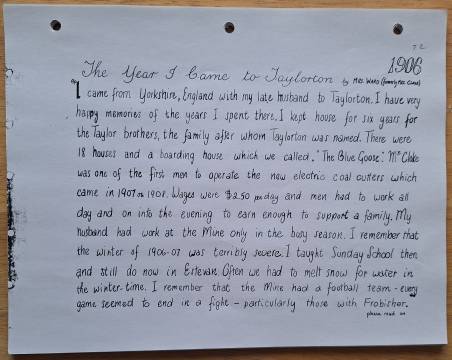 72
1906
The Year I Came to Taylorton by Mrs. Ward (formerly Mrs. Clake)
"I came from Yorkshire, England with my late husband to Taylorton. I have very
happy memories of the years I spent there. I kept house for six years for
the Taylor brothers, the family after whom Taylorton was named. There were
18 houses and a boarding house which we called, "The Blue Goose." Mr. Clake
was one of the first men to operate the new electric coal cutters which
came in 1907 or 1908. Wages were $2.50 per day and men had to work all
day and on into the evening to earn enough to support a family. My
husband had work at the Mine only in the busy season. I remember that
the winter of 1906-07 was terribly severe. I taught Sunday School then
and still do now in Estevan. Often we had to melt snow for water in
the winter-time. I remember that the Mine had a football team - every
game seemed to end in a fight - particularly those with Frobisher.
please read on